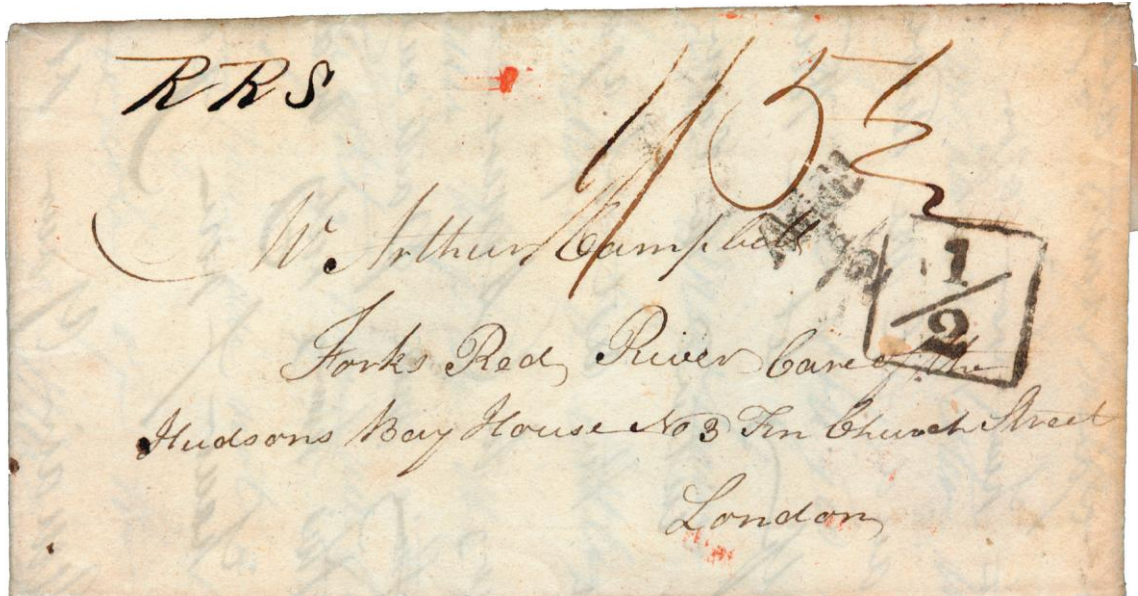 RRS
1/5½
Mr Arthur Campbell
1/2
Forks Red River Care of the
Hudsons Bay House No 3 Fen Church Street
London